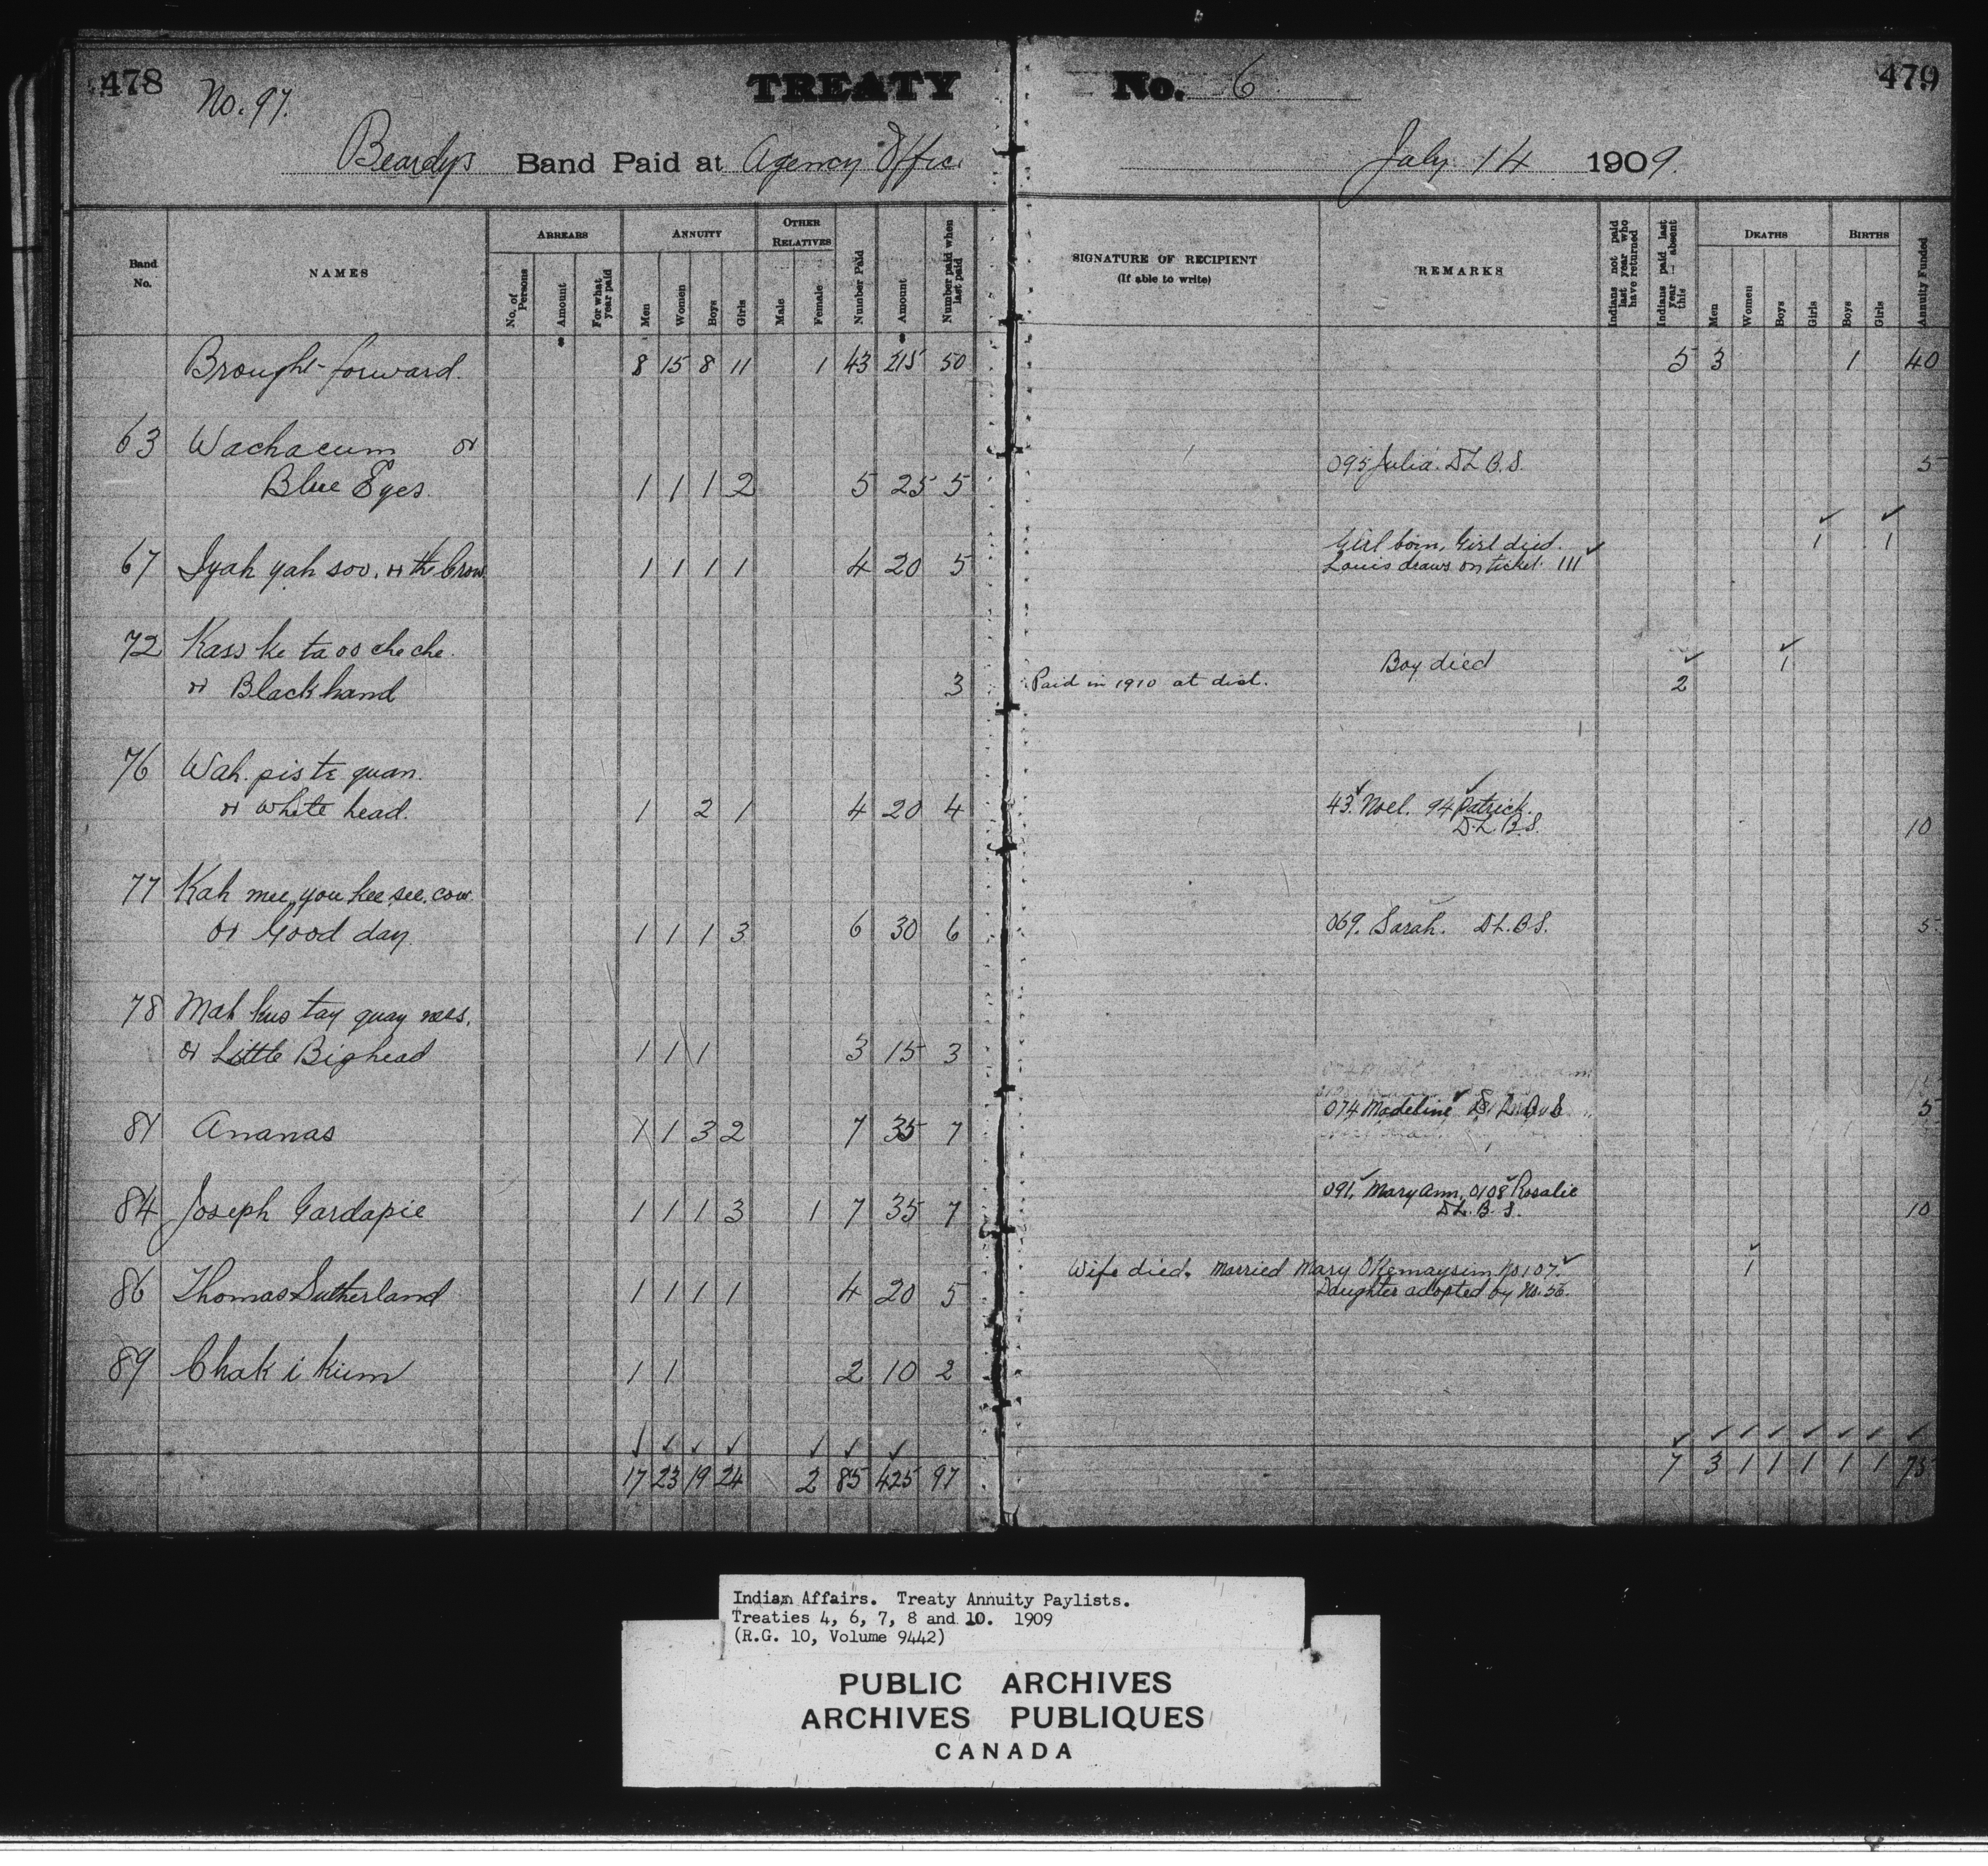 478
No. 97.
TREATY
No. 6
479
Beardys Band Paid at Agency Office
July 14 1909.
Band No.
NAMES
ARREARS
No. of Persons
Amount
For what year paid
ANNUITY
Men
Women
Boys
Girls
OTHER RELATIVES
Male
Female
Number Paid
Amount
Number paid when last paid
SIGNATURE OF RECIPIENT
(If able to write)
REMARKS
Indians not paid last year who have returned
Indians paid last year – absent this
DEATHS
Men
Women
Boys
Girls
BIRTHS
Boys
Girls
Annuity Funded
Brought forward. 8 15 8 11 1 43 215 50 5 3 1 40
63 Wachacum or
Blue Eyes. 1 1 1 2 5 25 5 095 Julia. D L B. S. 5
67 Iyah yah soo, or the Crow 1 1 1 1 4 20 5 Girl born, Girl died. 1 1
Louis draws on ticket 111
72 Kass ke ta oo che che. Boy died 1
or Blackhand 3 Paid in 1910 at dist. 2
76 Wah. pis te quan.
or White head. 1 2 1 4 20 4 43. Noel. 94 Patrick.
D. L. B. S. 10
77 Kah mee you kee see. cow
or Good day. 1 1 1 3 6 30 6 069. Sarah. D L. B S. 5
78 Mah kus tay quay sees.
or Little Bighead 1 1 1 3 15 3
81 Ananas 1 1 3 2 7 35 7 074 Madeline 5
84 Joseph Gardapie 1 1 1 3 1 7 35 7 091. Mary Ann, 0108 Rosalie
D L. B. S. 10
86 Thomas Sutherland 1 1 1 1 4 20 5 Wife died. Married Mary Okemaysim No 107. 1
Daughter adopted by No. 56.
89 Chak i kum 1 1 2 10 2
17 23 19 24 2 85 425 97 7 3 1 1 1 1 1 75
Indian Affairs. Treaty Annuity Paylists.
Treaties 4, 6, 7, 8 and 10. 1909
(R.G. 10, Volume 9442)
PUBLIC ARCHIVES
ARCHIVES PUBLIQUES
CANADA